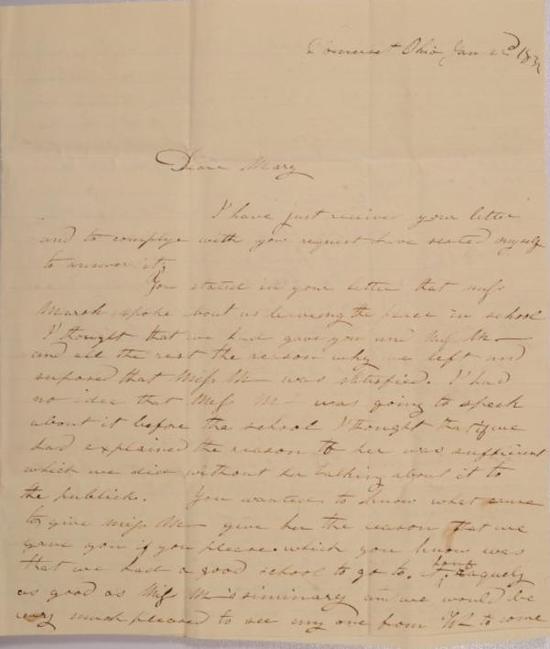 Somerset Ohio Jan 22d 183
Dear Mary
I have just receive your letter
and to complye with you request have seated myself
to answer it;
You stated in your letter that miss
Marsh spoke bout us leaving the in school
I thought that we had gave you and Miss M—
and all the rest the reason why we left and
suposed that Miss M— was satisfied. I had
no idee that Miss M— was going to speak
about it before the school I thought that if we
had explained the reason to her was sufficient
which we did without her talking about it to
the publick. You wanted to know what
to give Miss M— give her the reason that we
gave you if you please. which you know was
that we had a good school to go to.
as good as Miss M's siminary and we would be
very much pleased to see any one from to come